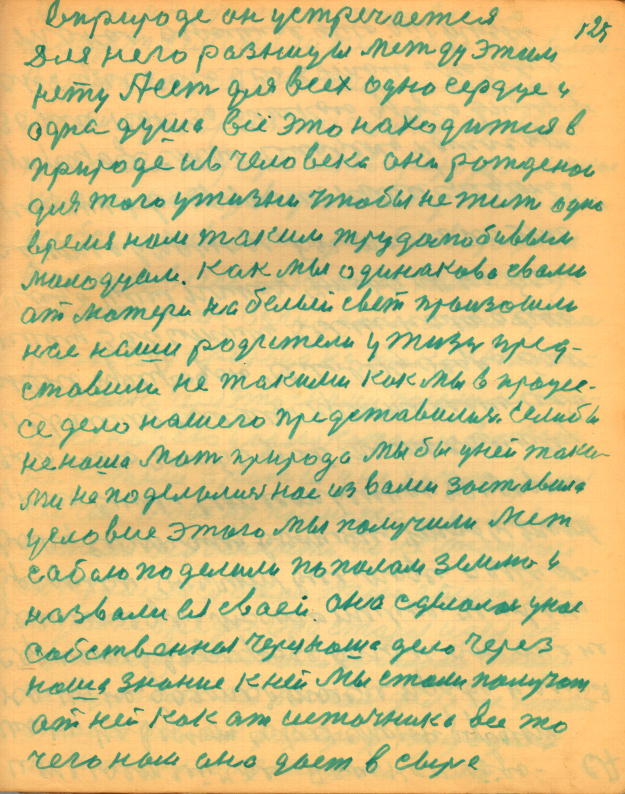 125
в природе он устречается
для него разницы между этим
нету А есть для всех одно сердце и
одна душа всё это находится в
природе и в человека она рождена
для того у жизни чтобы не жить одно
время нам таким трудолюбивым
молодцам. Как мы одинаково с вами
от матери на белый свет произошли
нас наши родители у жизу пред-
ставили не такими как мы в процес-
се дело нашего представились. Если бы
не наша мать природа мы бы у ней таки-
ми не поделились нас из вами заставила
условие этого мы получили меж
сабаю поделили пополам землю и
назвали ея сваей. она сделалась у нас
собственная через наша дело через
наша знание к ней мы стали получать
от ней как от источника все то
чего нам она дает в сыре